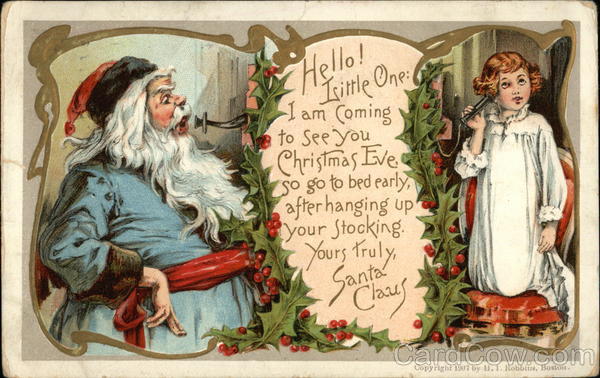 Hello!
Little One:
I am Coming
to see you
Christmas Eve,
so go to bed early,
after hanging up
your stocking.
Yours truly,
Santa
Claus
Copyright 1907 by H. I. Robbins, Boston.
CardCow.com